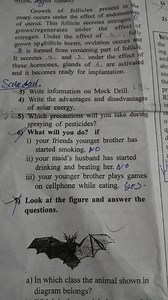 Growth of follicles present in the
ovary occurs under the effect of
of uterus. This follicle secretes estrogen
grows/regenerates under the effect
estrogen. Under the effect of fully
grown up follicle bursts, ovulation occurs and
is formed from remaining part of follicle.
It secretes and under the effect of
these hormones, glands of are activated
and it becomes ready for implantation.
3) Write information on Mock Drill.
4) Write the advantages and disadvantages
of solar energy.
5) Which precautions will you take during
spraying of pesticides?
6) What will you do? if
i) your friends younger brother has
started smoking. NO
ii) your maid's husband has started
drinking and beating her. NO
iii) your younger brother plays games
on cellphone while eating. Yes.
7) Look at the figure and answer the
questions.
a) In which class the animal shown in
diagram belongs?